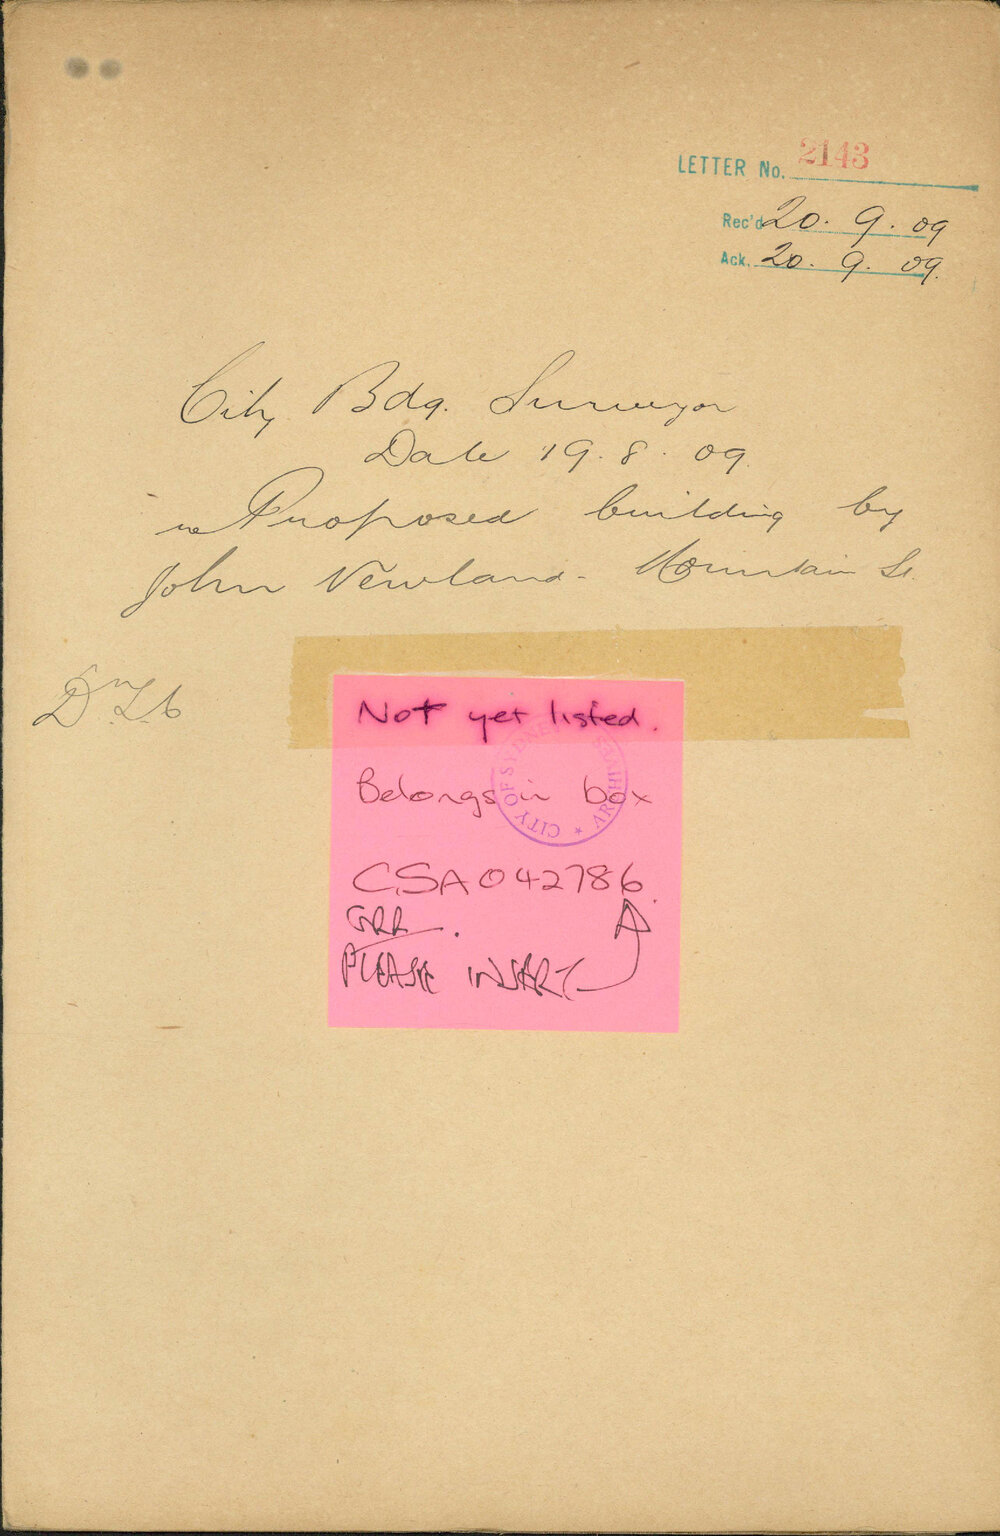 LETTER No. 2143
Rec'd 20. 9. 09
Ack. 20. 9. 09.
City Bdg. Surveyor
Date 19. 8. 09.
re Proposed building by
John Newland. Mountain St.
Not yet listed.
Belongs in box
CITY OF SYDNEY ARCHIVES ★
CSA 042786.
PLEASE INSERT